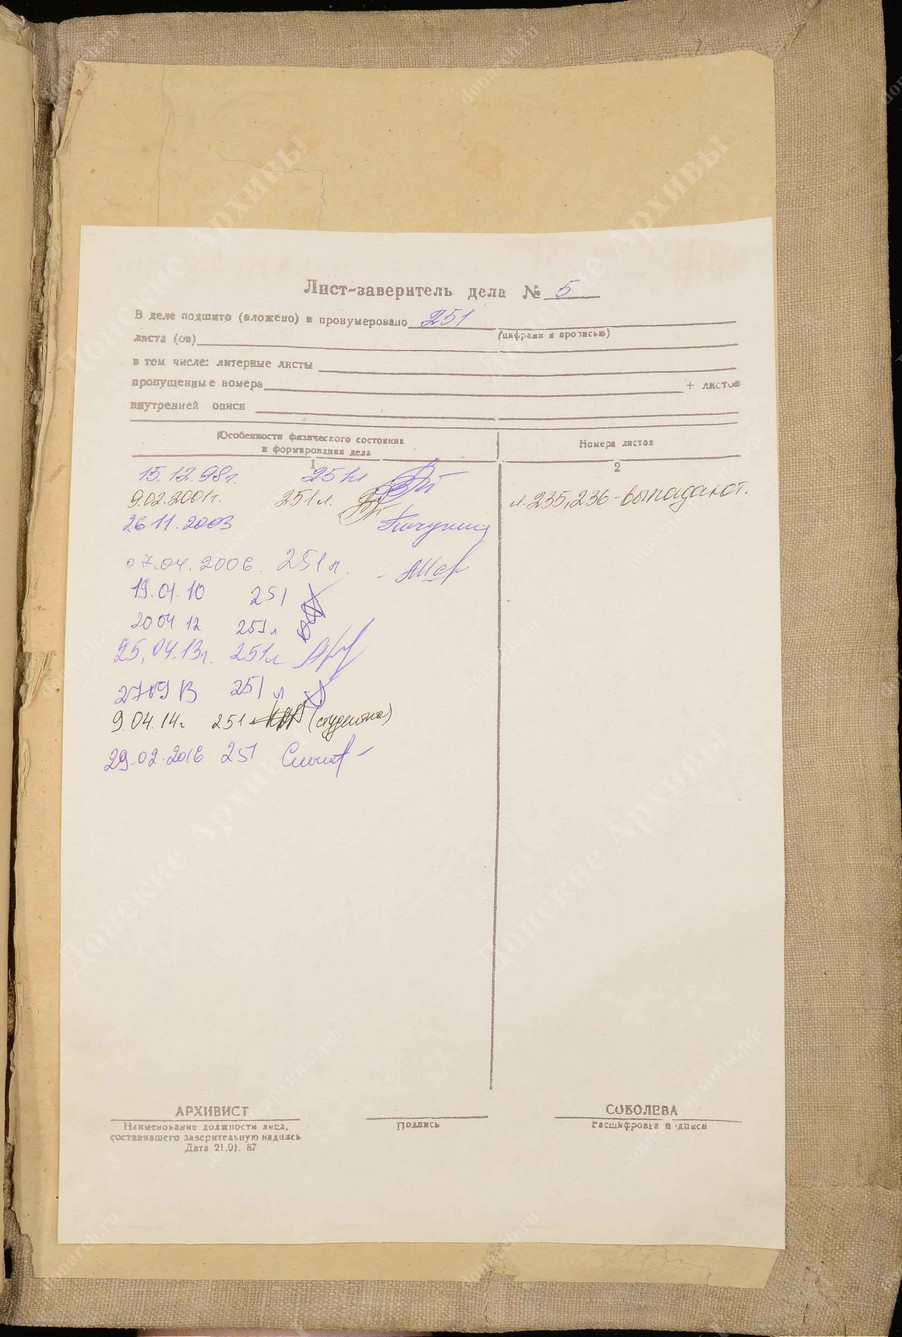 Лист-заверитель дела № 5
В деле подшито (вложено) и пронумеровано 251
(цифрами и прописью)
листа (ов)
в том числе: литерные листы
пропущенные номера + листов
внутренней описи
Особенности физического состояния
и формирования дела
Номера листов
1
2
15.12.98г. 251л
9.02.2001г. 251л. л. 235, 236 - выпадают.
26.11.2003
07.04.2006 251л.
19.01.10 251
20 04 12 251л
25.04.13г. 251л
27 09 13 251 л
9.04.14г 251л (студентка)
29.02.2016 251
АРХИВИСТ
СОБОЛЕВА
Наименование должности лица,
составившего заверительную надпись
Дата 21.01. 87
Подпись
Расшифровка подписи
Донские Архивы
donarch.ru